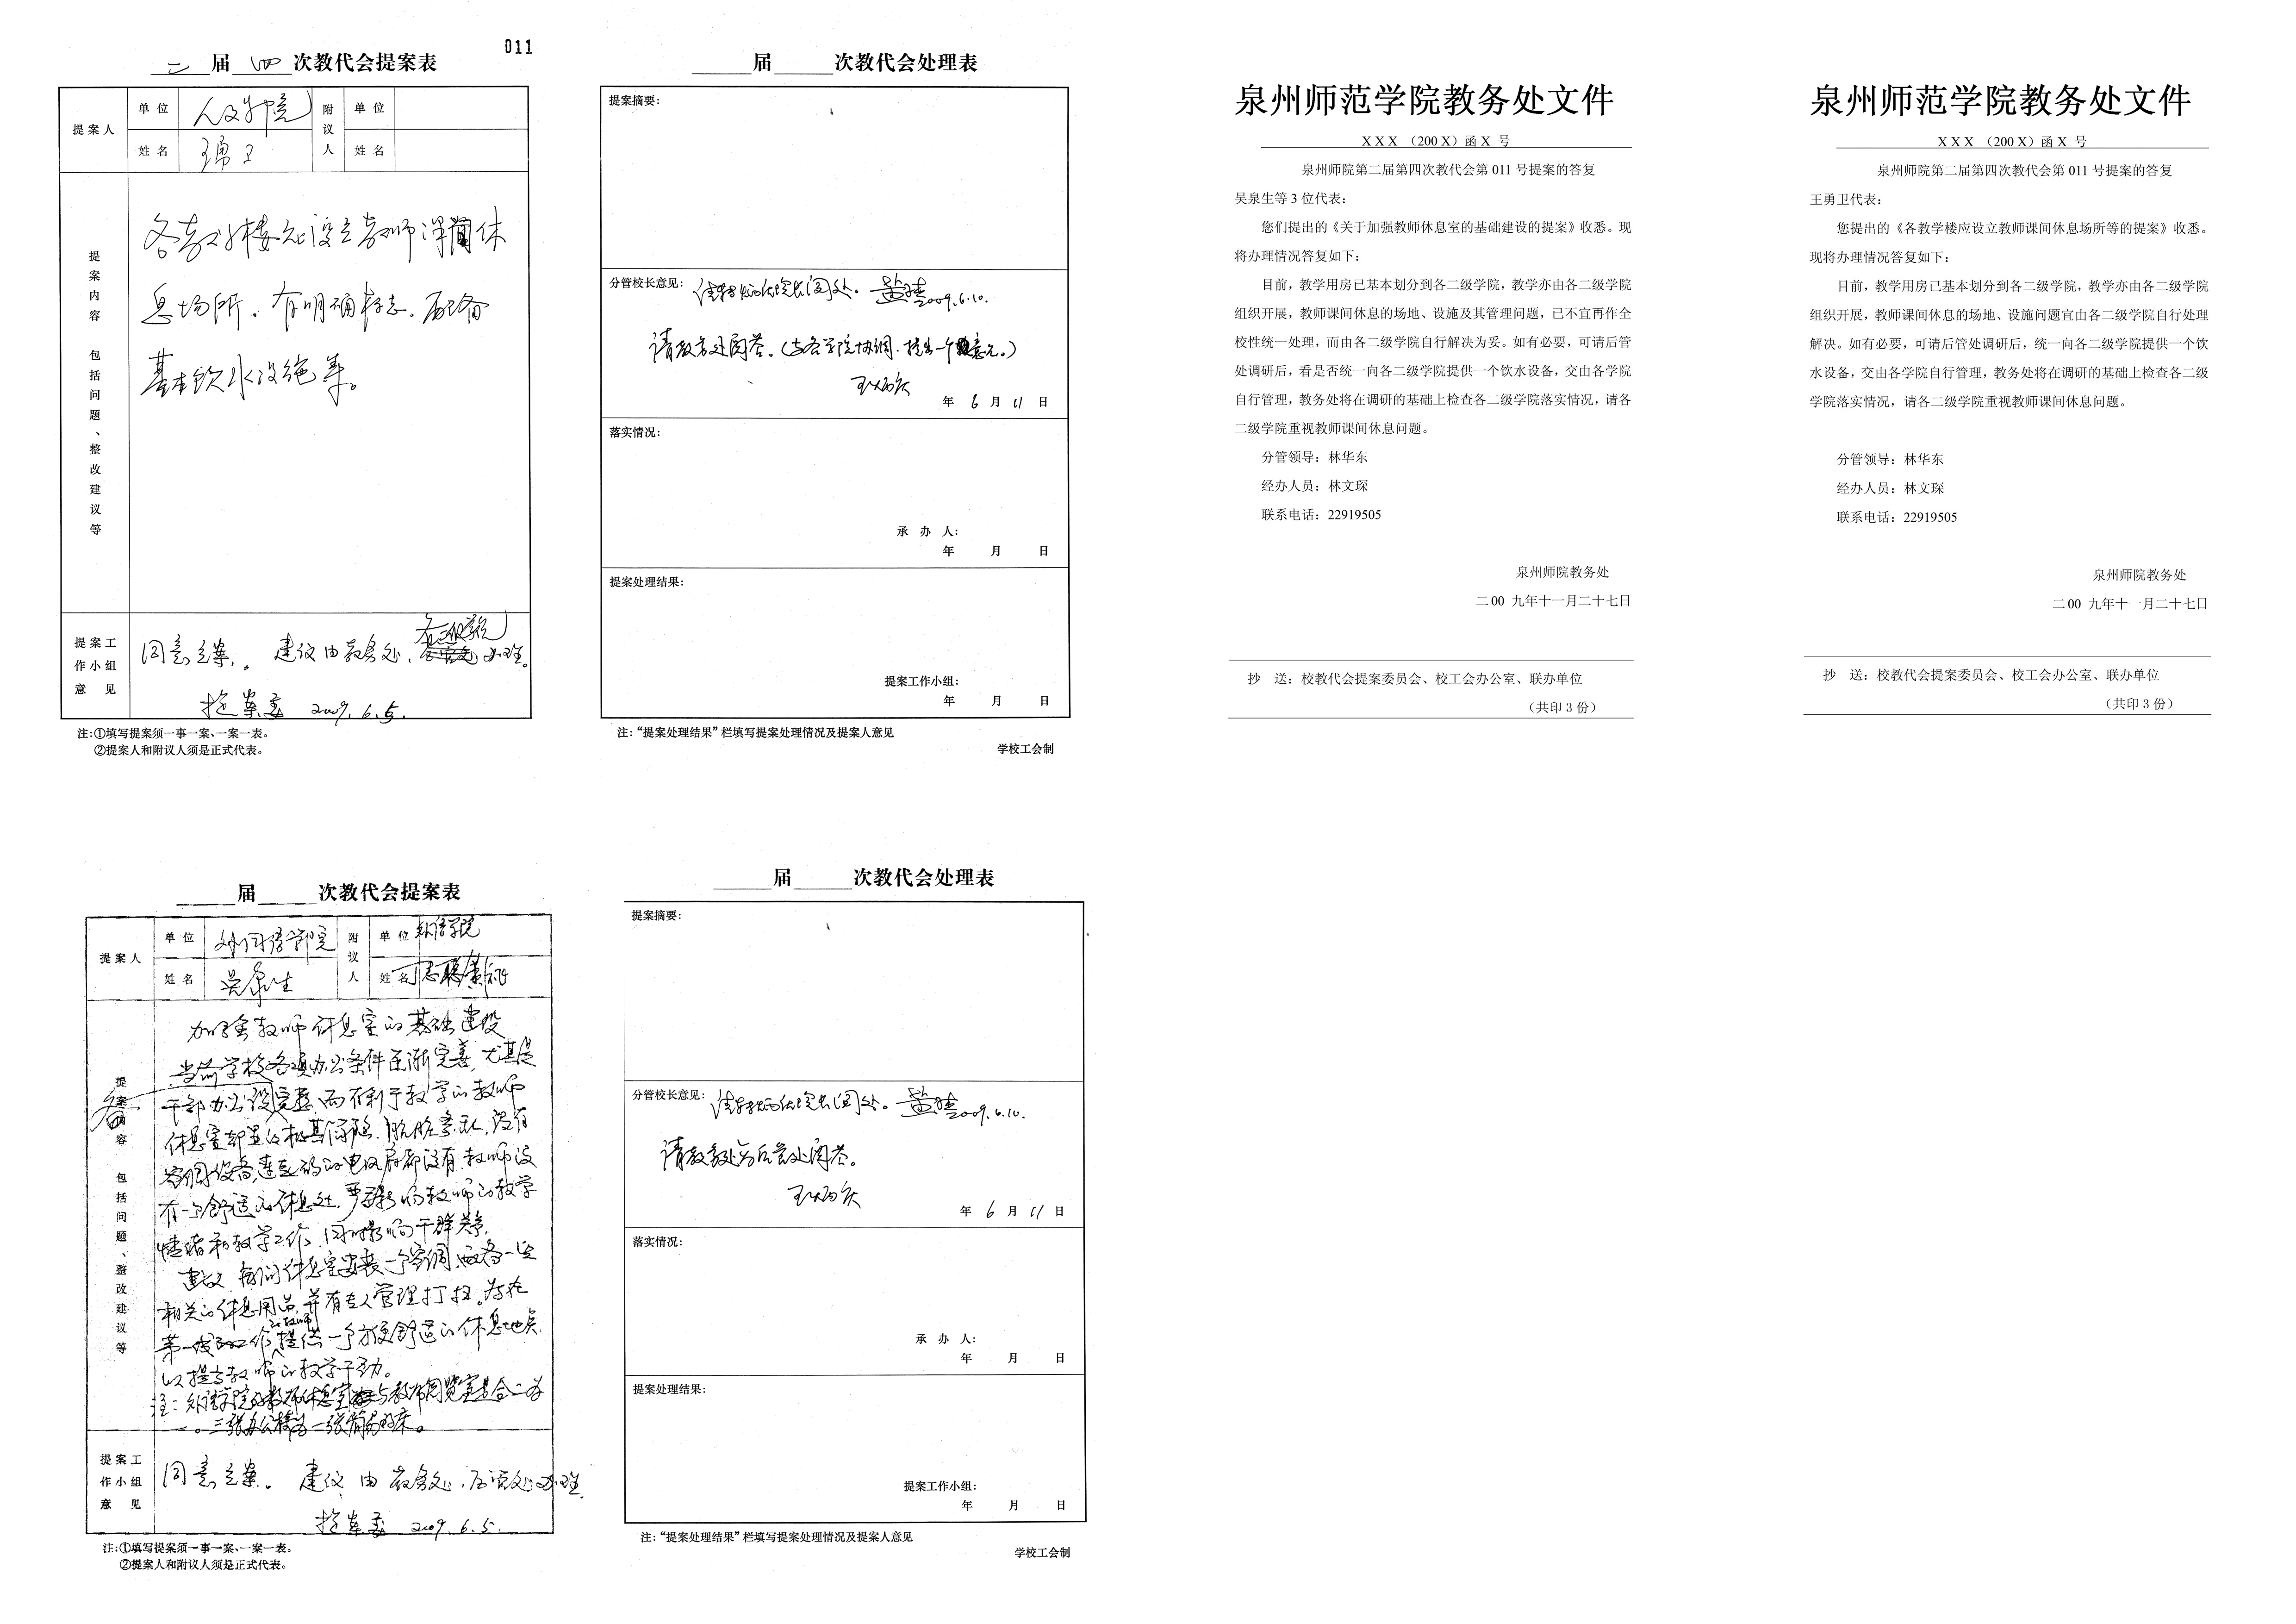 011
二 届 四 次教代会提案表
提案人
单位
人文学院
附议人
单位
姓名
王勇卫
姓名
提案内容 包括问题、整改建议等
各教学楼应设立教师课间休
息场所。有明确标志。配备
基本饮水设施等。
提案工作小组意见
各二级学院
同意立案。建议由教务处、办理。
提案委 2009.6.5.
注:①填写提案须一事一案、一案一表。
②提案人和附议人须是正式代表。
届 次教代会处理表
提案摘要:
分管校长意见:
阅处。 2009.6.10.
请教务处阅答。(与各学院协调,提出一个意见。)
年 6 月 11 日
落实情况:
承 办 人:
年 月 日
提案处理结果:
提案工作小组:
年 月 日
注:“提案处理结果”栏填写提案处理情况及提案人意见
学校工会制
泉州师范学院教务处文件
XXX (200X)函X 号
泉州师院第二届第四次教代会第 011 号提案的答复
吴泉生等 3 位代表:
您们提出的《关于加强教师休息室的基础建设的提案》收悉。现
将办理情况答复如下:
目前,教学用房已基本划分到各二级学院,教学亦由各二级学院
组织开展,教师课间休息的场地、设施及其管理问题,已不宜再作全
校性统一处理,而由各二级学院自行解决为妥。如有必要,可请后管
处调研后,看是否统一向各二级学院提供一个饮水设备,交由各学院
自行管理,教务处将在调研的基础上检查各二级学院落实情况,请各
二级学院重视教师课间休息问题。
分管领导:林华东
经办人员:林文琛
联系电话:22919505
泉州师院教务处
二00 九年十一月二十七日
抄 送:校教代会提案委员会、校工会办公室、联办单位
(共印 3 份)
泉州师范学院教务处文件
XXX (200X)函X 号
泉州师院第二届第四次教代会第 011 号提案的答复
王勇卫代表:
您提出的《各教学楼应设立教师课间休息场所等的提案》收悉。
现将办理情况答复如下:
目前,教学用房已基本划分到各二级学院,教学亦由各二级学院
组织开展,教师课间休息的场地、设施问题宜由各二级学院自行处理
解决。如有必要,可请后管处调研后,统一向各二级学院提供一个饮
水设备,交由各学院自行管理,教务处将在调研的基础上检查各二级
学院落实情况,请各二级学院重视教师课间休息问题。
分管领导:林华东
经办人员:林文琛
联系电话:22919505
泉州师院教务处
二00 九年十一月二十七日
抄 送:校教代会提案委员会、校工会办公室、联办单位
(共印 3 份)
届 次教代会提案表
提案人
单位
外国语学院
附议人
单位
外语学院
姓名
吴泉生
姓名
提案内容 包括问题、整改建议等
加强教师休息室的基础建设
当前学校各项办公条件逐渐完善,尤其是
干部办公设完善,而有利于教学的教师
休息室却显的极其简陋、肮脏紊乱,没有
空调设备,连起码的电风扇都没有,教师没
有一个舒适的休息处,严重影响教师的教学
情绪和教学工作,同时影响干群关系。
建议 每间休息室安装一个空调,配备一些
相关的休息用品,并有专人管理打扫。为在
第一线工作的教师提供一个方便舒适的休息地点,
以提高教师的教学干劲。
注:外语学院的教师休息室与教师阅览室是合二为
一。三张办公椅为一张简易的床。
提案工作小组意见
同意立案。建议由教务处、后管处办理。
提案委 2009.6.5.
注:①填写提案须一事一案、一案一表。
②提案人和附议人须是正式代表。
届 次教代会处理表
提案摘要:
分管校长意见:
阅处。 2009.6.10.
请教务处、后管处阅答。
年 6 月 11 日
落实情况:
承 办 人:
年 月 日
提案处理结果:
提案工作小组:
年 月 日
注:“提案处理结果”栏填写提案处理情况及提案人意见
学校工会制